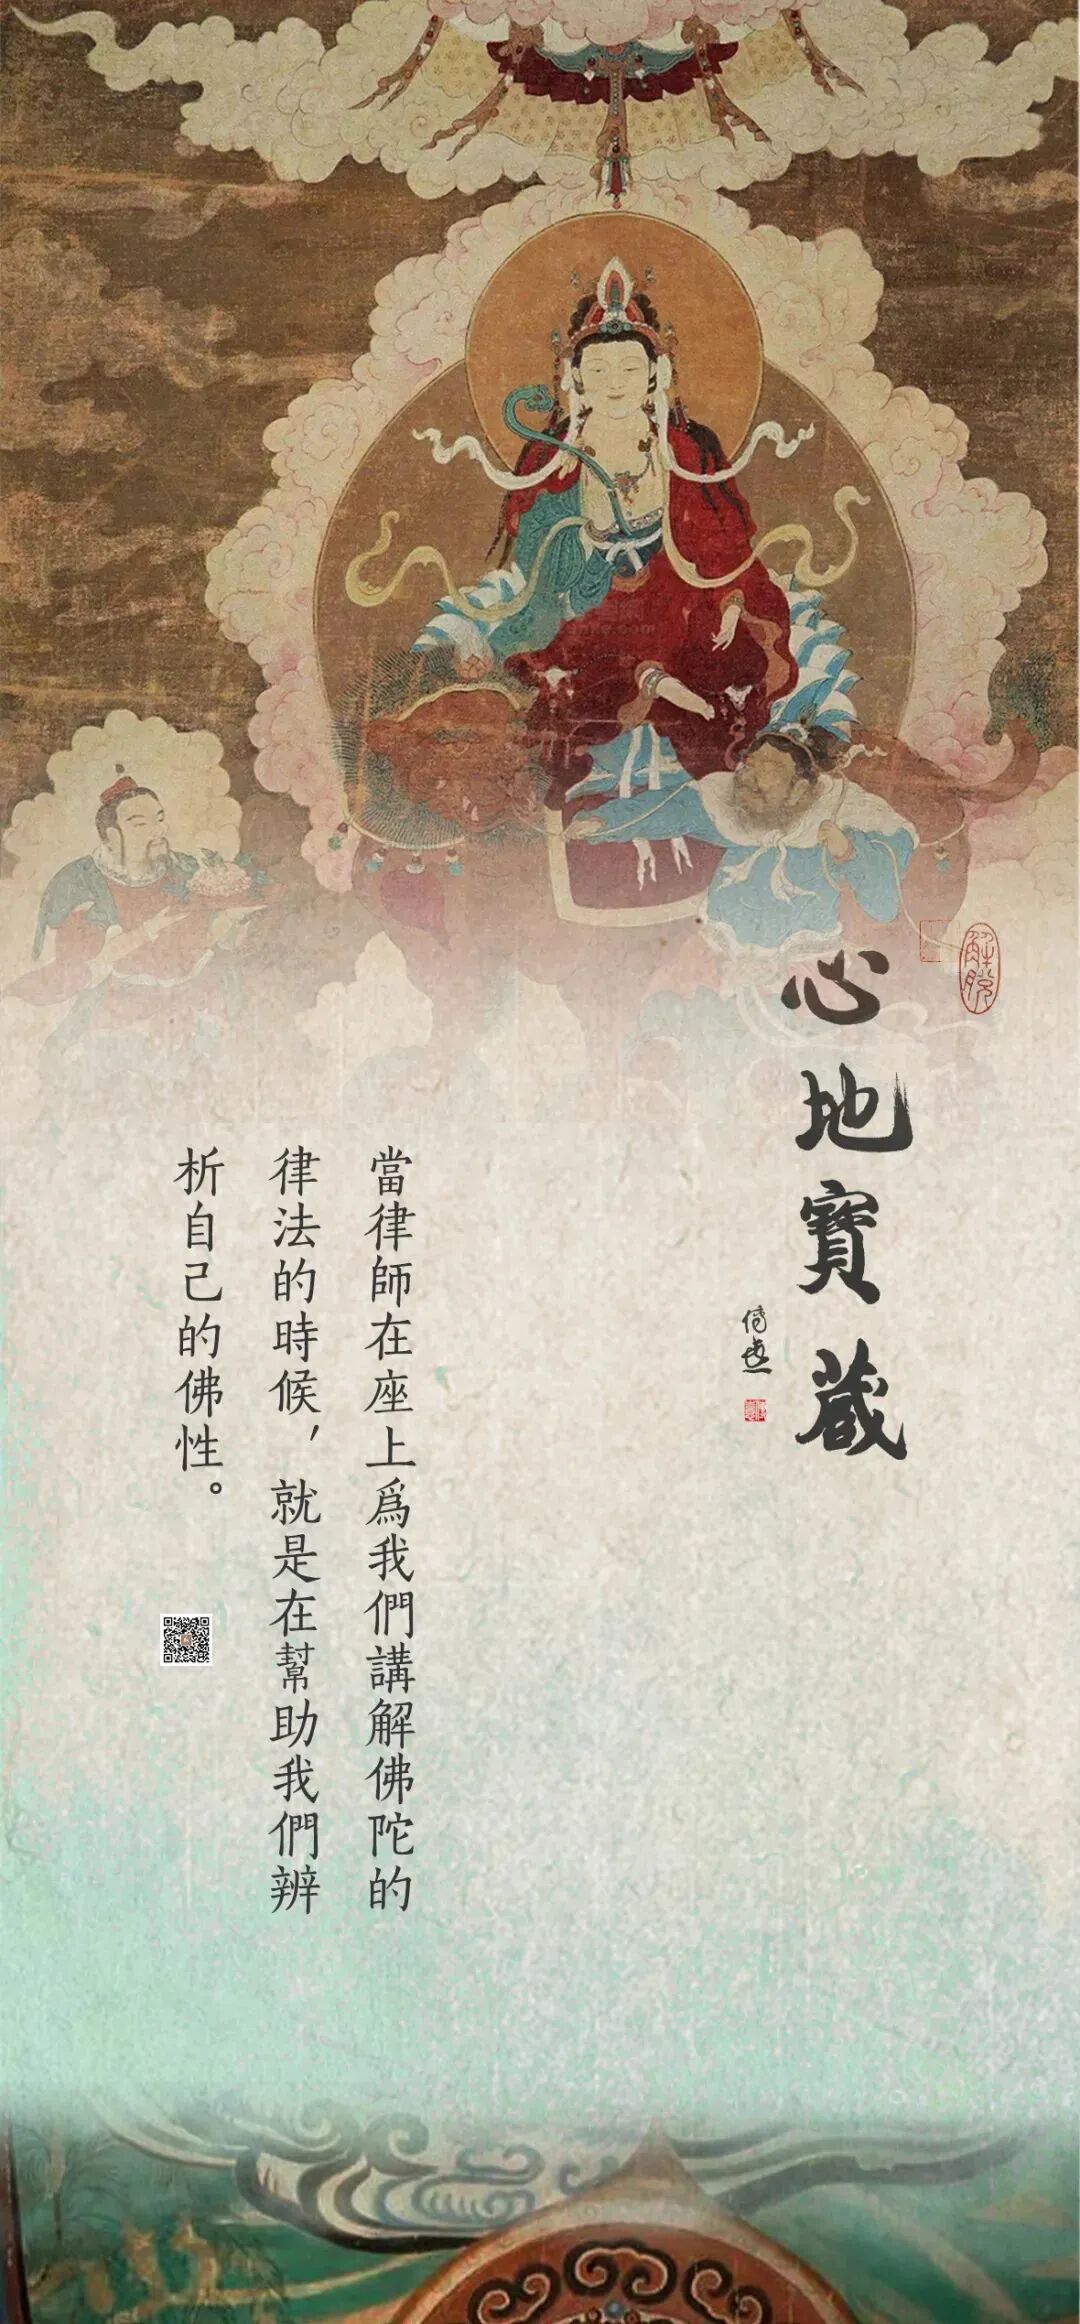 解脱
心地寶藏
當律師在座上爲我們講解佛陀的
律法的時候，就是在幫助我們辨
析自己的佛性。